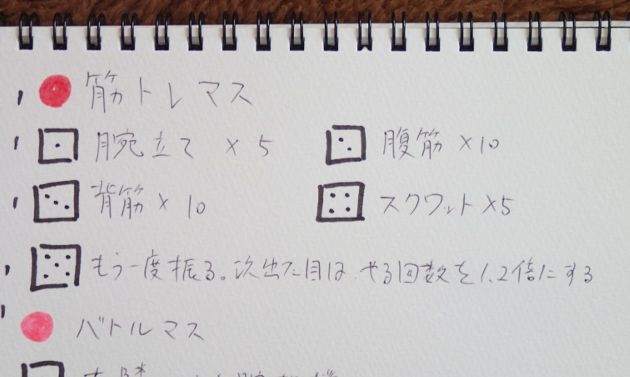 筋トレマス
腕立て ×5 腹筋×10
背筋×10 スクワット×5
もう一度振る。次出た目は、やる回数を1.2倍にする
バトルマス